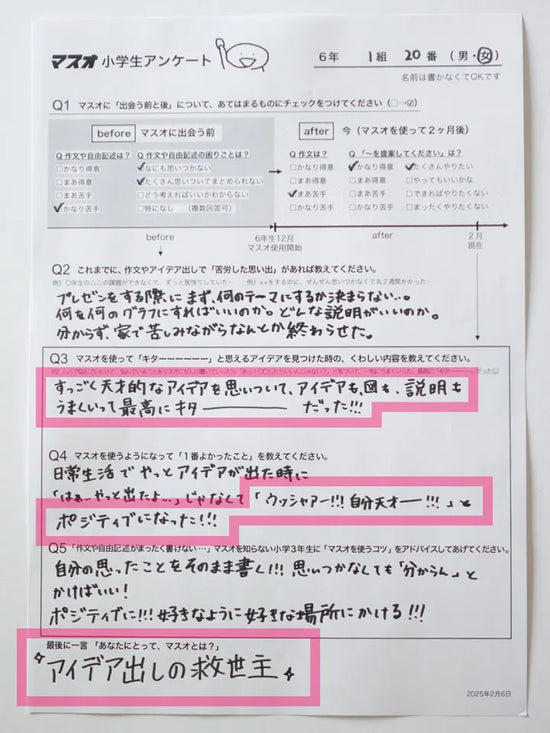 マスオ 小学生アンケート
6年 1組 20番 (男・女)
名前は書かなくてOKです
Q1 マスオに「出会う前と後」について、あてはまるものにチェックをつけてください(□→☑)
before マスオに出会う前
after 今(マスオを使って2ヶ月後)
Q 作文や自由記述は? Q 作文や自由記述の困りごとは?
Q 作文は? Q「〜を提案してください」は?
□かなり得意 ☑なにも思いつかない
□かなり得意 ☑かなり得意 ☑たくさんやりたい
□まあ得意 ☑たくさん思いついてまとめられない
□まあ得意 □まあ得意 □やってもいいかな
□まあ苦手 □どう考えればいいかわからない
☑まあ苦手 □まあ苦手 □できればやりたくない
☑かなり苦手 □特になし (複数回答可)
□かなり苦手 □かなり苦手 □まったくやりたくない
before
6年生12月
マスオ使用開始
after
2月
現在
Q2 これまでに、作文やアイデア出しで「苦労した思い出」があれば教えてください。
プレゼンをする際にまず、何のテーマにするか決まらない…。
何を何のグラフにすればいいのか。どんな説明がいいのか。
分からず、家で苦しみながらなんとか終わらせた。
Q3 マスオを使って「キターーーーー」と思えるアイデアを見つけた時の、くわしい内容を教えてください。
すっごく天才的なアイデアを思いついて、アイデアも、図も、説明も
うまくいって最高にキターーーだった!!!
Q4 マスオを使うようになって「1番よかったこと」を教えてください。
日常生活でやっとアイデアが出た時に
「はぁ…やっと出たよ…」じゃなくて「ウッシャアー!!!自分天才ー!!!」と
ポジティブになった!!!
Q5 「作文や自由記述がまったく書けない…」マスオを知らない小学3年生に「マスオを使うコツ」をアドバイスしてあげてください。
自分の思ったことをそのまま書く!!! 思いつかなくても「分からん」と
かけばいい!
ポジティブに!!!好きなように好きな場所にかける!!!
最後に一言「あなたにとって、マスオとは?」
アイデア出しの救世主
2025年2月6日